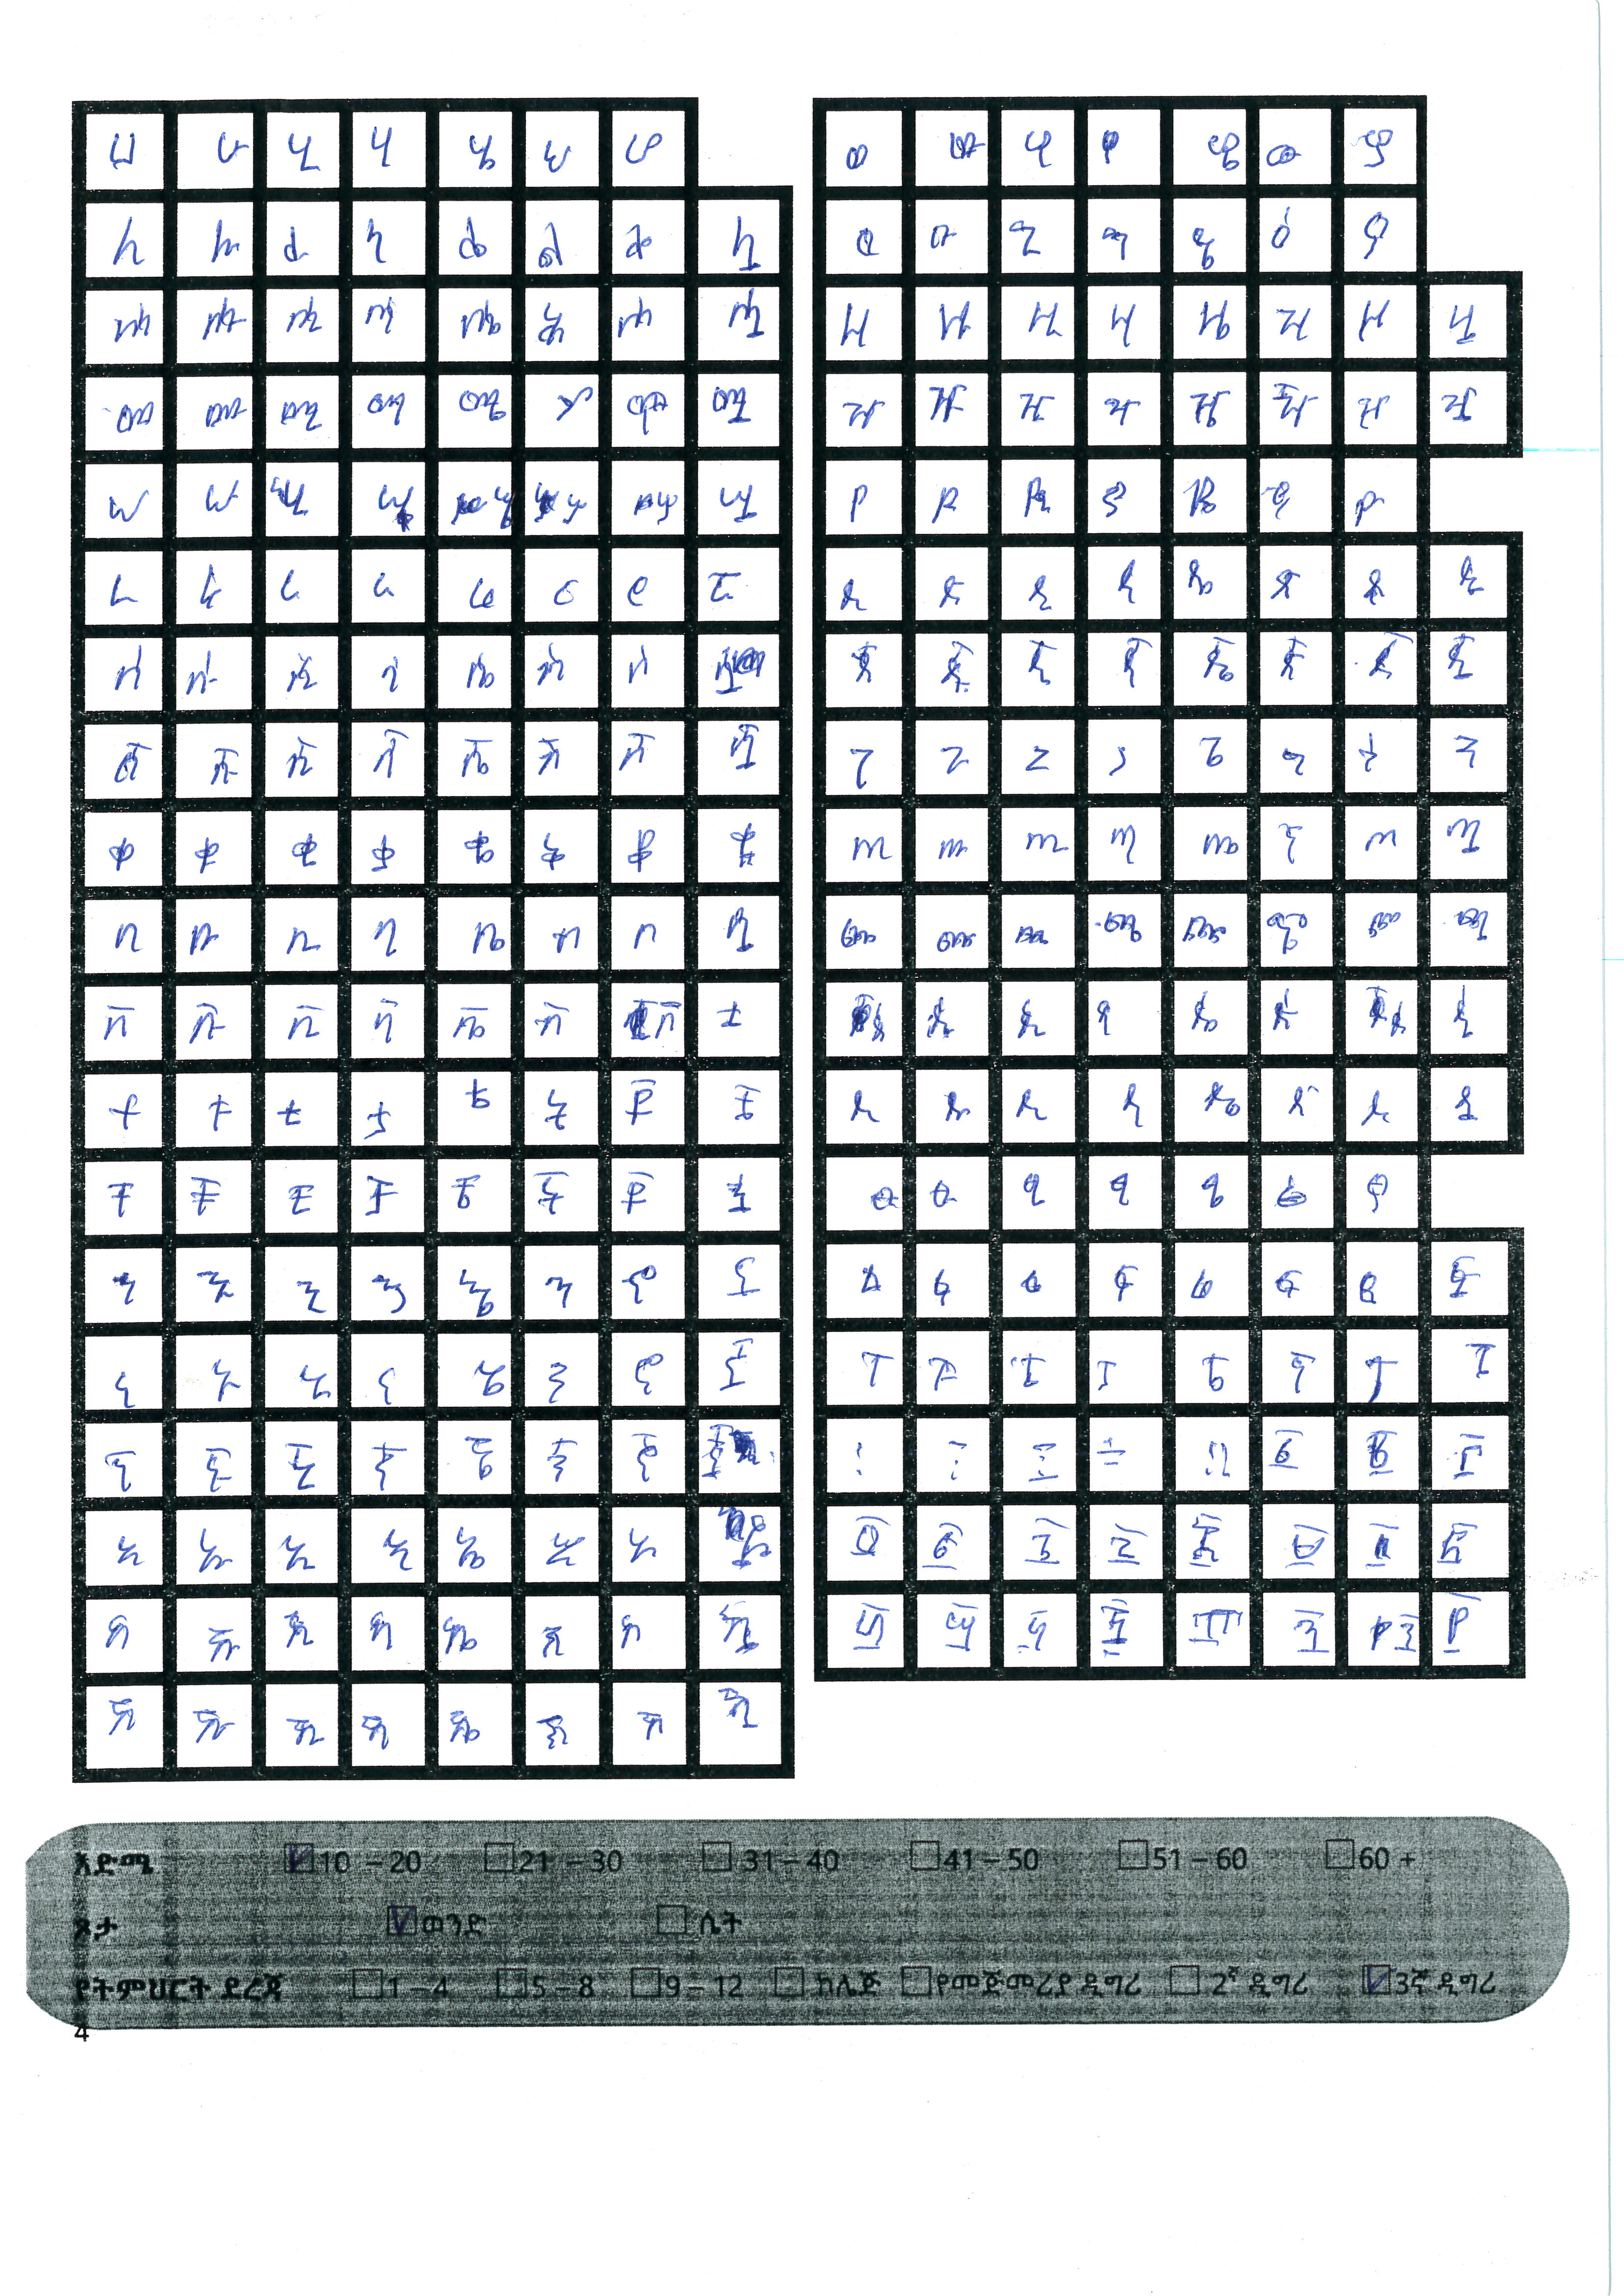 ሀ ሁ ሂ ሃ ሄ ህ ሆ
ለ ሉ ሊ ላ ሌ ል ሎ ሏ
ሐ ሑ ሒ ሓ ሔ ሕ ሖ ሗ
መ ሙ ሚ ማ ሜ ም ሞ ሟ
ሠ ሡ ሢ ሣ ሤ ሥ ሦ ሧ
ረ ሩ ሪ ራ ሬ ር ሮ ሯ
ሰ ሱ ሲ ሳ ሴ ስ ሶ ሷ
ሸ ሹ ሺ ሻ ሼ ሽ ሾ ሿ
ቀ ቁ ቂ ቃ ቄ ቅ ቆ ቋ
በ ቡ ቢ ባ ቤ ብ ቦ ቧ
ቨ ቩ ቪ ቫ ቬ ቭ ቮ
ተ ቱ ቲ ታ ቴ ት ቶ ቷ
ቸ ቹ ቺ ቻ ቼ ች ቾ ቿ
ኀ ኁ ኂ ኃ ኄ ኅ ኆ ኋ
ነ ኑ ኒ ና ኔ ን ኖ ኗ
ኘ ኙ ኚ ኛ ኜ ኝ ኞ ኟ
አ ኡ ኢ ኣ ኤ እ ኦ
ከ ኩ ኪ ካ ኬ ክ ኮ ኳ
ኸ ኹ ኺ ኻ ኼ ኽ ኾ ዃ
ወ ዉ ዊ ዋ ዌ ው ዎ
ዐ ዑ ዒ ዓ ዔ ዕ ዖ
ዘ ዙ ዚ ዛ ዜ ዝ ዞ ዟ
ዠ ዡ ዢ ዣ ዤ ዥ ዦ ዧ
የ ዩ ዪ ያ ዬ ይ ዮ
ደ ዱ ዲ ዳ ዴ ድ ዶ ዷ
ጀ ጁ ጂ ጃ ጄ ጅ ጆ ጇ
ገ ጉ ጊ ጋ ጌ ግ ጎ ጓ
ጠ ጡ ጢ ጣ ጤ ጥ ጦ ጧ
ጨ ጩ ጪ ጫ ጬ ጭ ጮ ጯ
ጰ ጱ ጲ ጳ ጴ ጵ ጶ ጷ
ጸ ጹ ጺ ጻ ጼ ጽ ጾ ጿ
ፀ ፁ ፂ ፃ ፄ ፅ ፆ
ፈ ፉ ፊ ፋ ፌ ፍ ፎ ፏ
ፐ ፑ ፒ ፓ ፔ ፕ ፖ ፗ
፩ ፪ ፫
፬ ፭ ፮ ፯ ፰ ፱ ፲ ፳
፴ ፵ ፶ ፷
እድሜ 10 – 20 21 – 30 31 – 40 41 – 50 51 – 60 60 +
ጾታ ወንድ ሴት
የትምህርት ደረጃ 1 – 4 5 – 8 9 – 12 ኮሌጅ የመጀመሪያ ዲግሪ 2ኛ ዲግሪ 3ኛ ዲግሪ
4